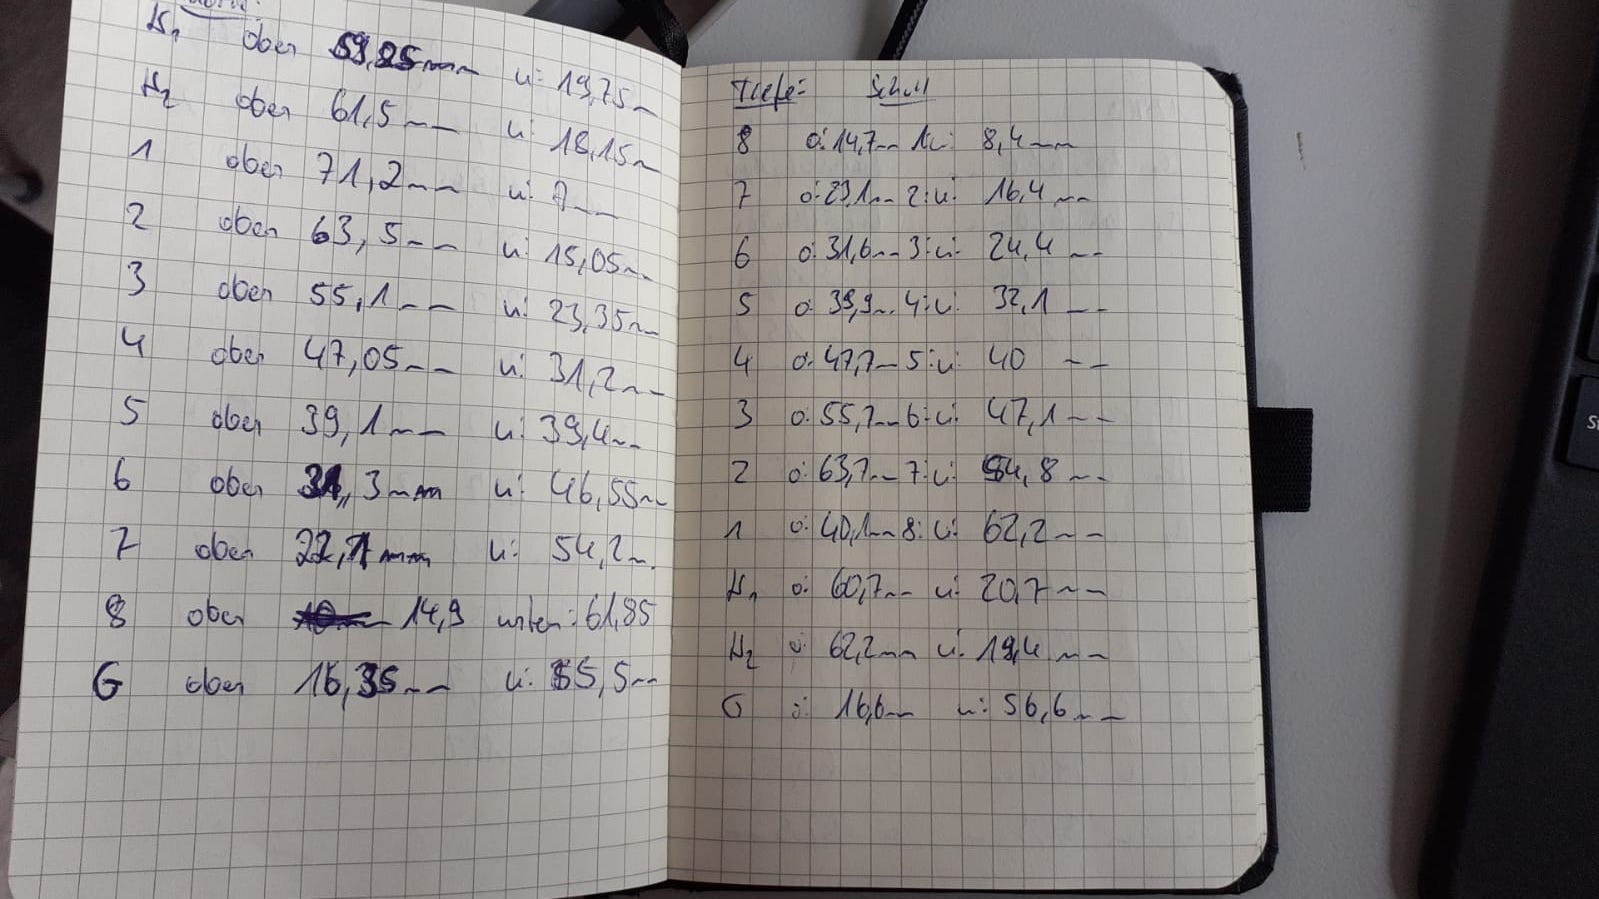 H₁ ober 59,85mm u: 19,75m
H₂ ober 61,5mm u: 18,15m
1 ober 71,2mm u: 7mm
2 ober 63,5mm u: 15,05mm
3 ober 55,1mm u: 23,35mm
4 ober 47,05mm u: 31,2mm
5 ober 39,1mm u: 39,4mm
6 ober 31,3mm u: 46,55mm
7 ober 22,1mm u: 54,2m.
8 ober 14,9 unten: 61,85
G ober 16,35mm u: 55,5mm
Tiefe:
8 o: 14,7mm 1: u: 8,4mm
7 o: 23,1mm 2: u: 16,4mm
6 o: 31,6mm 3: u: 24,4mm
5 o: 39,9mm 4: u: 32,1mm
4 o: 47,7mm 5: u: 40 mm
3 o: 55,7mm 6: u: 47,1mm
2 o: 63,7mm 7: u: 54,8mm
1 o: 40,1mm 8: u: 62,2mm
H₁ o: 60,7mm u: 20,7mm
H₂ o: 62,2mm u: 19,4mm
G o: 16,6mm u: 56,6mm